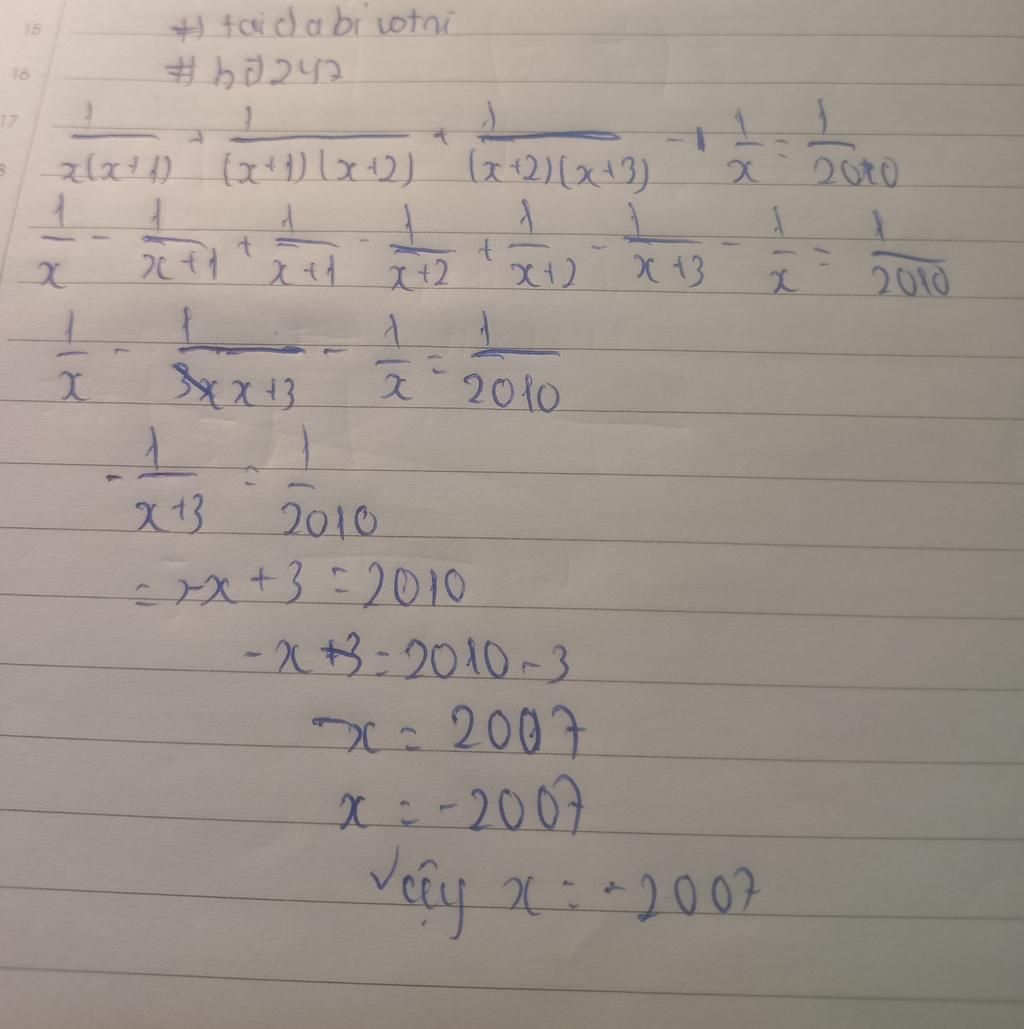 15
16
# hđ247
17
1/x(x+1) + 1/(x+1)(x+2) + 1/(x+2)(x+3) - 1/x = 1/2010
1/x - 1/x+1 + 1/x+1 - 1/x+2 + 1/x+2 - 1/x+3 - 1/x = 1/2010
1/x - 1/x+3 - 1/x = 1/2010
- 1/x+3 = 1/2010
=> -x + 3 = 2010
-x +3 = 2010 - 3
-x = 2007
x = -2007
Vậy x = -2007